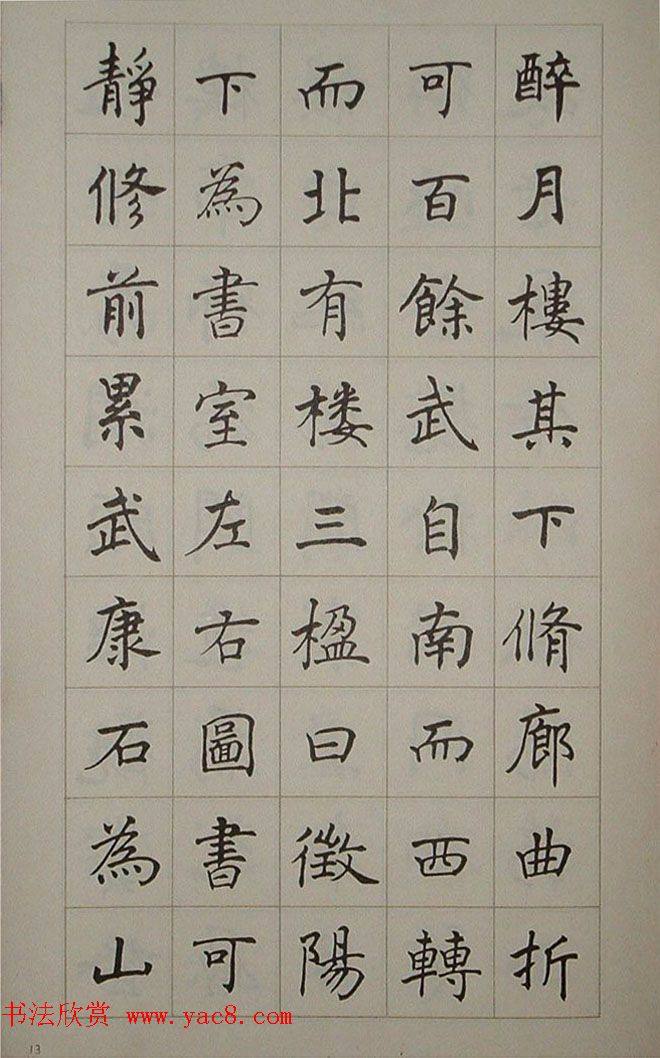 醉月樓其下脩廊曲折
可百餘武自南而西轉
而北有楼三楹曰徵陽
下為書室左右圖書可
靜修前累武康石為山
书法欣赏 www.yac8.com
13